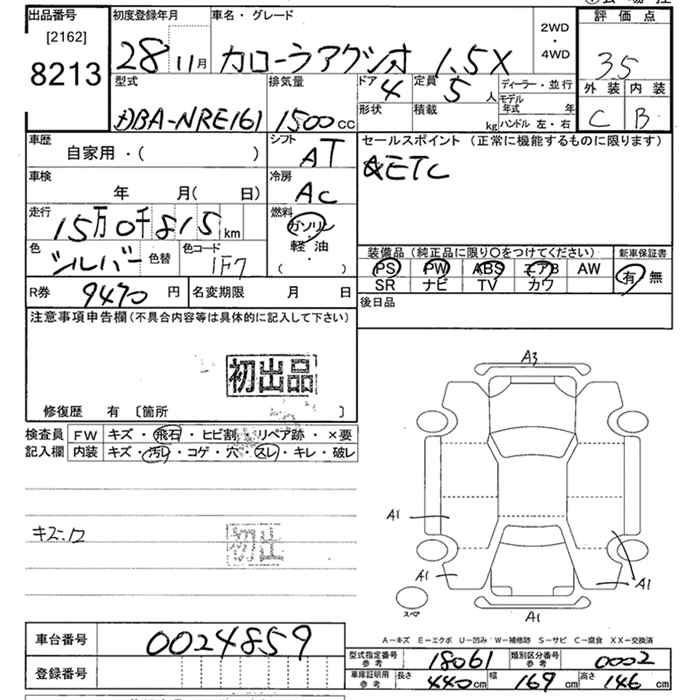 出品番号 初度登録年月 車名・グレード 評価点
[2162] 2WD
8213 28 11月 カローラアクシオ 1.5X ・ 4WD 3.5
型式 排気量 ドア 定員 ディーラー・並行 外装 内装
4 5人 モデル年式 年
形状 積載 kg ハンドル 左・右 C B
DBA-NRE161 1500cc
車歴 シフト セールスポイント (正常に機能するものに限ります)
自家用・( ) AT ETC
車検 冷房
年 月( 日) AC
走行 燃料
15万0千815km ガソリン
色 色替 色コード 軽油 装備品 (純正品に限り○をつけてください) 新車保証書
シルバー 1F7 ・( ) PS PW ABS エアB AW 有・無
SR ナビ TV カワ
R券 9470円 名変期限 月 日 後日品
注意事項申告欄(不具合内容等は具体的に記入して下さい)
初出品
A3
修復歴 有 〔箇所 〕
検査員 FW キズ・飛石・ヒビ割・リペア跡・×要
記入欄 内装 キズ・汚レ・コゲ・穴・スレ・キレ・破レ
A1
キズ
A1 A1
スペア
A1
A-キズ E-エクボ U-凹み W-補修跡 S-サビ C-腐食 XX-交換済
車台番号 0024859
型式指定番号 参考 18061 類別区分番号 参考 0002
登録番号
車庫証明用 参考 長さ 440cm 幅 169cm 高さ 146cm